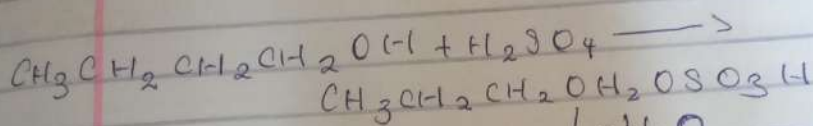 CH₃CH₂CH₂CH₂OH + H₂SO₄ →
CH₃CH₂CH₂OH₂OSO₃H